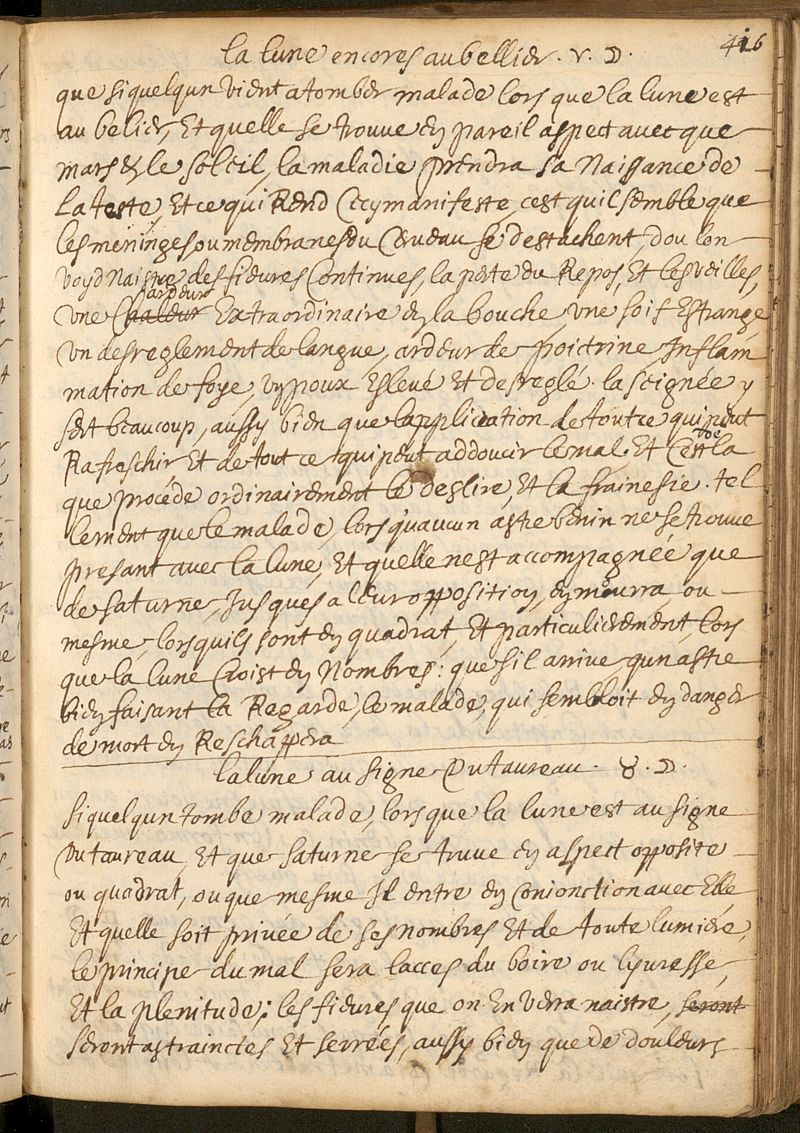 416
la lune encores au bellier. ♈. ☽.
que si quelqun vient a tomber malade lors que la lune est
au belier, Et quelle se trouve en pareil aspect avec que
mars et le soleil, la maladie prendra sa Naissance de
La teste, Et ce qui Rend Cecy manifeste, cest quil semble que
les meninges ou membranes du Cerveau se destachent, dou lon
voyd Naistre des fieures Continues, la perte du Repos, Et les veilles,
ardeur
vne Chaleur Extraordinaire en la bouche, vne soif Estrange
vn desreglement de langue, ardeur de poictrine Inflam
mation de foye, vn poux Eslevé Et desreglé. la seignée y
sert beaucoup, aussy bien que lapplication de tout ce qui peut
Rafreschir Et de tout ce qui peut addoucir le mal. Et Cest de la
que procede ordinairement le deslire, Et la frainesie. tel
lement que le malade, lors quaucun astre benin ne se trouve
presant avec la lune, Et quelle nest accompagnée que
de saturne, Jusques a leur opposition, en mourra, ou
mesme lors quils sont en quadrat, Et particulierement, lors
que la lune Croist en Nombres: que sil arrive qun astre
bien faisant la Regarde, le malade, qui sembloit en danger
de mort en Reschappera
la lune au signe Du taureau. ♉. ☽.
si quelqun Tombe malade, lors que la lune est au signe
Du taureau, Et que saturne se truve en aspect opposite
ou quadrat, ou que mesme Il entre en Conionction avec Elle
Et quelle soit privée de ses nombres Et de toute lumiere,
le principe du mal sera lacces du boire ou lyuresse,
Et la plenitude; les fieures que on En verra naistre, seront
seront astrainctes Et serrées, aussy bien que de douleurs